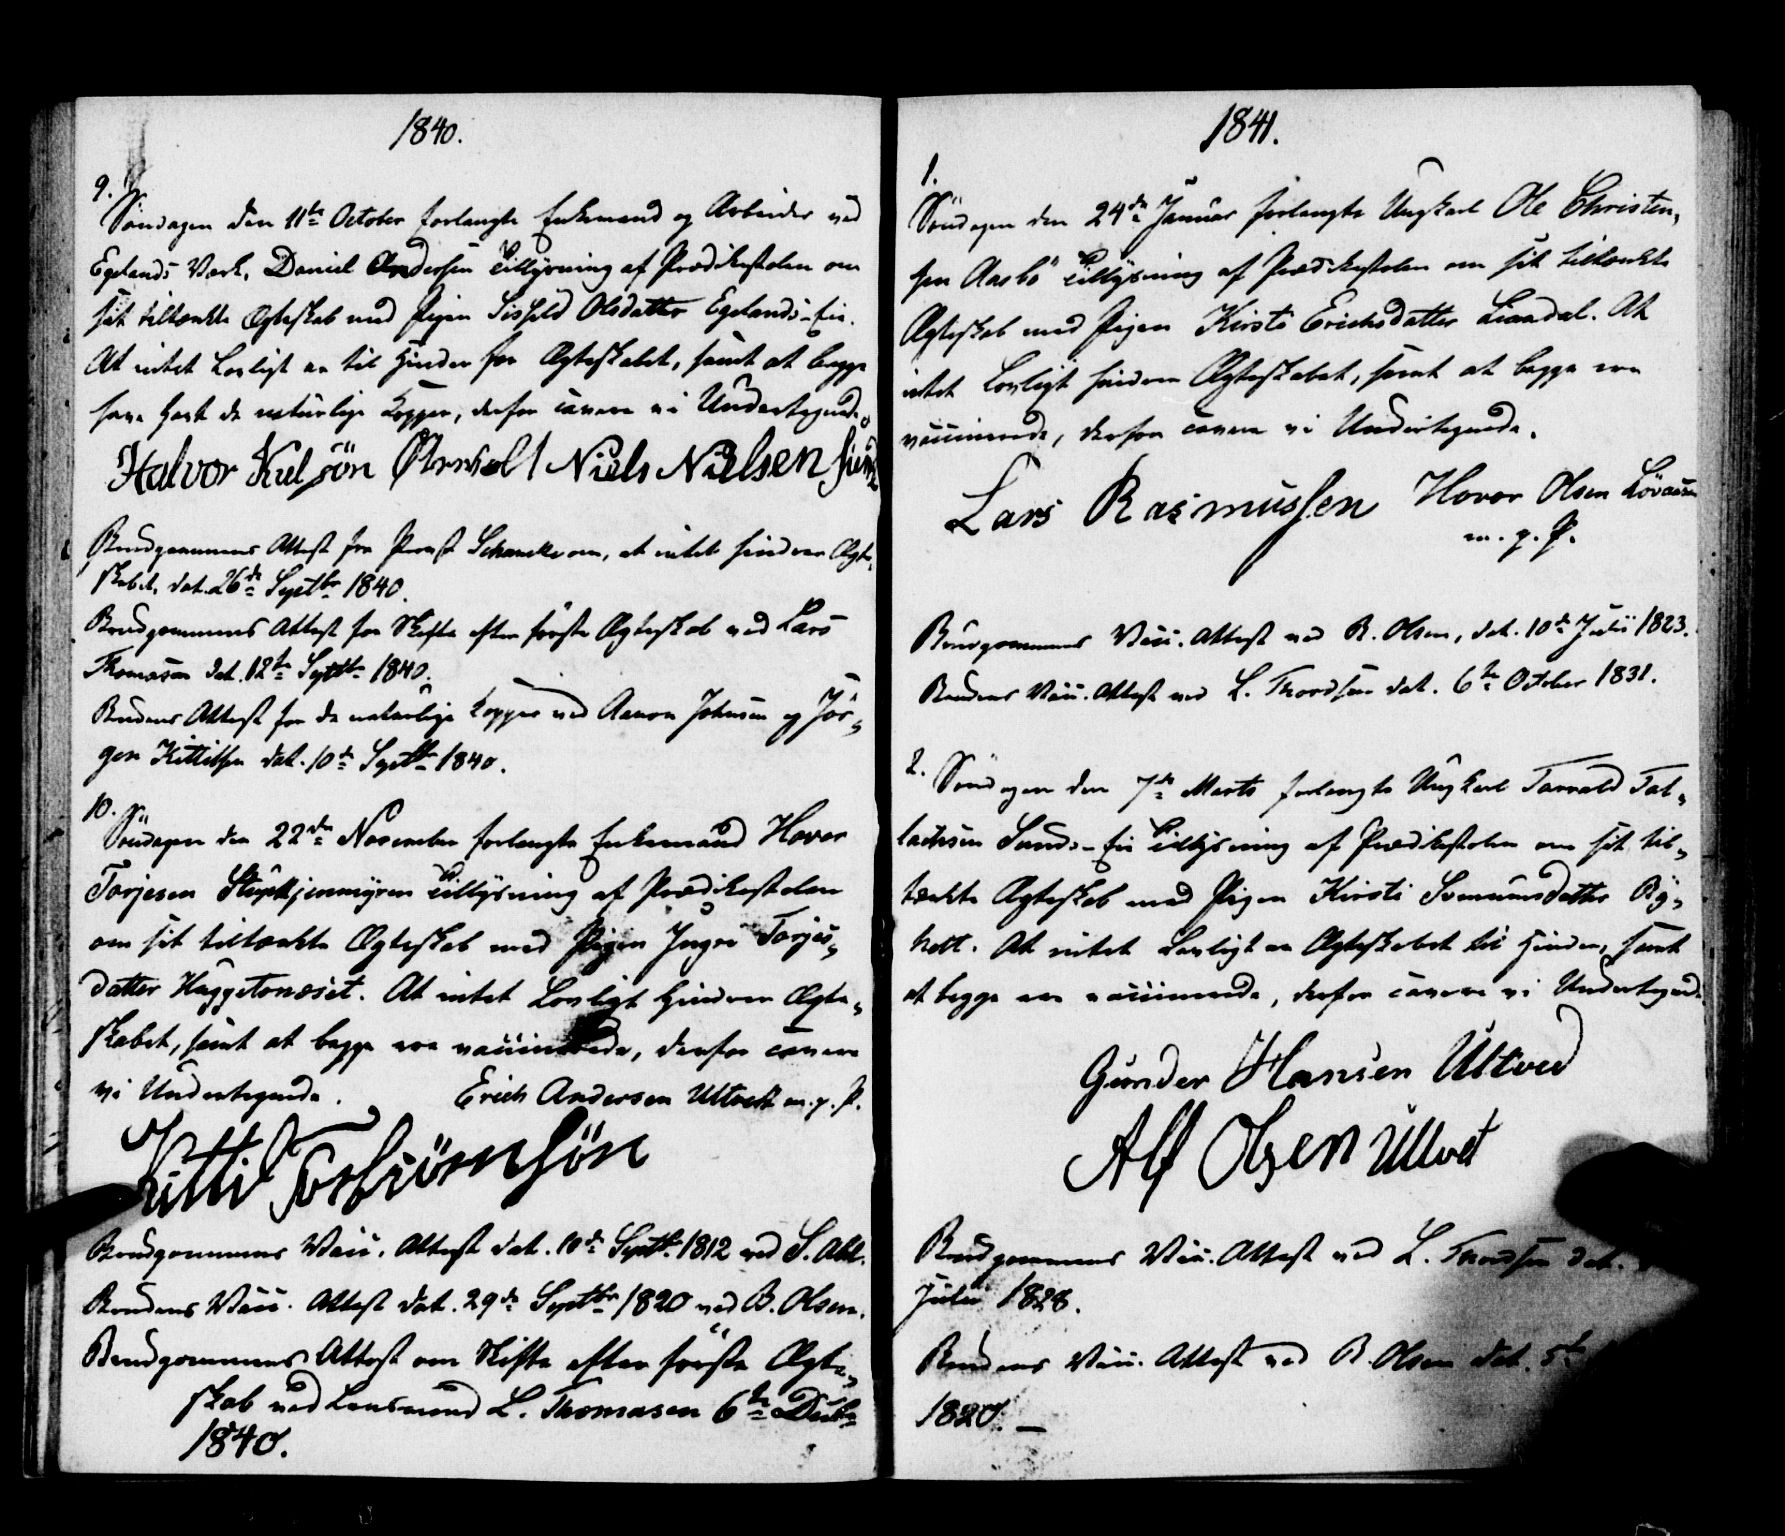 1840.
9.
Søndagen den 11te October forlangte Enkemand og Arbeider ved
Egelands Værk, Daniel Andersen Tillysning af Prædikestolen om
sit tiltænkte Ægteskab med Pigen Sisseld Olsdatter Egelands-Eie.
At intet Lovligt er til Hinder for Ægteskabet, samt at begge
have havt de naturlige Kopper, derfor cavere vi Undertegnede.
Halvor Kielsön Ørnvolt Niels Nielsen
Brudgommens Attest fra Provst Schanche om, at intet hindrer Ægte-
skabet, dat. 26de Septbr 1840.
Brudgommens Attest for Skifte efter første Ægteskab ved Lars
Thomasen dat. 12te Septbr 1840.
Brudens Attest for de naturlige Kopper ved Aanon Johnsen og Jör-
gen Kittilsen dat. 10de Septbr 1840.
10.
Søndagen den 22de November forlangte Enkemand Hovor
Torjesen Tillysning af Prædikestolen
om sit tiltænkte Ægteskab med Pigen Ingre Torjes-
datter Huggetonæset. At intet Lovligt hindrer Ægte-
skabet, samt at begge ere vaccinerede, derfor cavere
vi Undertegnede. Erich Andersen Ultvedt m. p. P.
Kittil Torbiörnsön
Brudgommens Vacc. Attest dat. 10de Septbr 1812 ved S. Abel.
Brudens Vacc. Attest dat. 29de Septbr 1820 ved B. Olsen.
Brudgommens Attest om Skifte efter første Ægte-
skab ved Lensmand L. Thomasen 6te Decbr
1840.
1841.
1.
Søndagen den 24de Januar forlangte Ungkarl Ole Christen-
sen Aasbö Tillysning af Prædikestolen om sit tiltænkte
Ægteskab med Pigen Kirsti Erichsdatter Lindal. At
intet Lovligt hindrer Ægteskabet, samt at begge ere
vaccinerede, derfor cavere vi Undertegnede.
Lars Rasmussen Hovor Olsen
m. p. P.
Brudgommens Vacc. Attest ved B. Olsen, dat. 10de Julii 1823.
Brudens Vacc. Attest ved L. Thordsen dat. 6te October 1831.
2.
Søndagen den 7de Marts forlangte Ungkarl Tarrald Tal-
lachsen Sunds-Eie Tillysning af Prædikestolen om sit til-
tænkte Ægteskab med Pigen Kirsti Gomunsdatter Röy-
sett. At intet Lovligt er Ægteskabet til Hinder, samt
at begge ere vaccinerede, derfor cavere vi Undertegnede
Gunder Hansen Ultved
Alf Olsen Ultvet
Brudgommens Vacc. Attest ved L. Thordsen dat.
Julii 1828.
Brudens Vacc. Attest ved B. Olsen dat. 5te
1820. —